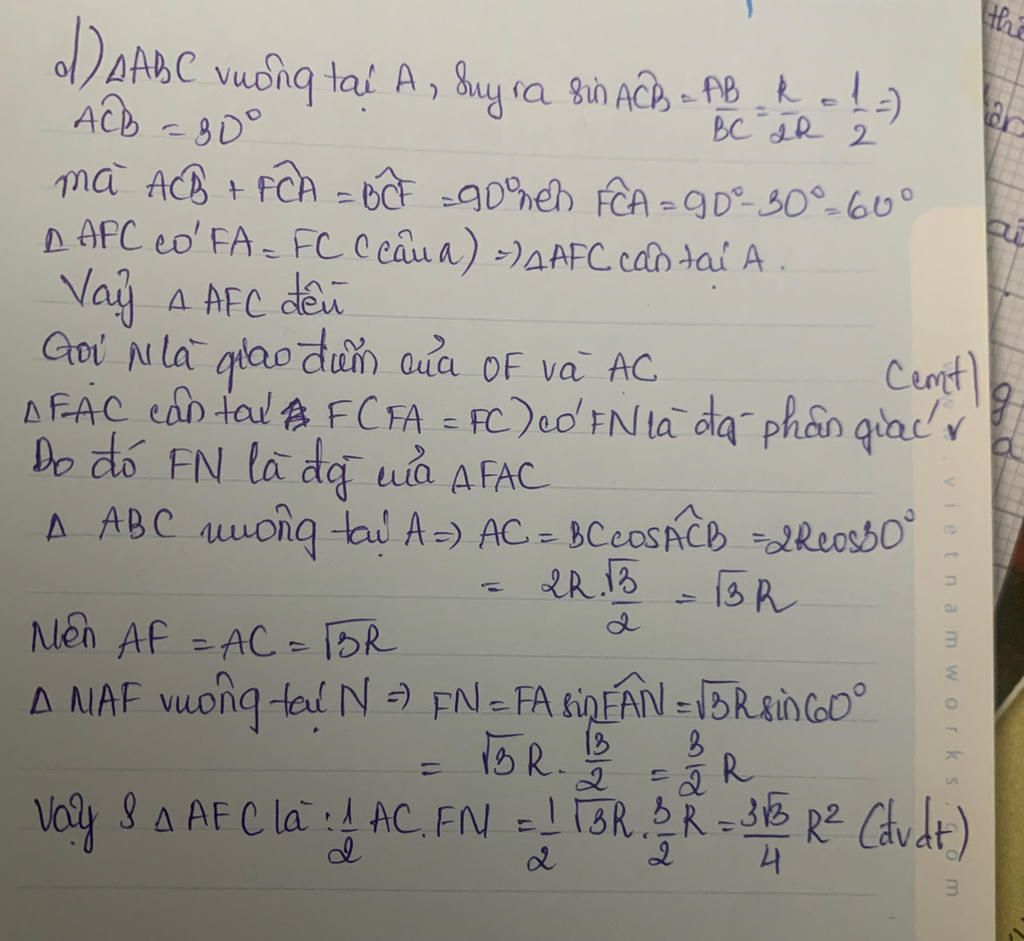 d) △ABC vuông tại A, suy ra sin ACB̂ = AB/BC = R/2R = 1/2 =>
ACB̂ = 30°
mà ACB̂ + FCÂ = BCF̂ = 90° nên FCÂ = 90° - 30° = 60°
△ AFC có FA = FC (câu a) => △AFC cân tại A.
Vậy △ AFC đều
Gọi N là giao điểm của OF và AC
△FAC cân tại F (FA = FC) có FN là đg phân giác (cmt)
Do đó FN là đg của △FAC
△ ABC vuông tại A => AC = BC cos ACB̂ = 2R cos30°
= 2R.√3/2 = √3R
Nên AF = AC = √3R
△ NAF vuông tại N => FN = FA sin FAN̂ = √3R sin60°
= √3R.√3/2 = 3/2 R
Vậy S △ AFC là : 1/2 AC.FN = 1/2 √3R.3/2R = 3√3/4 R² (đvdt)
vietnamworks.com